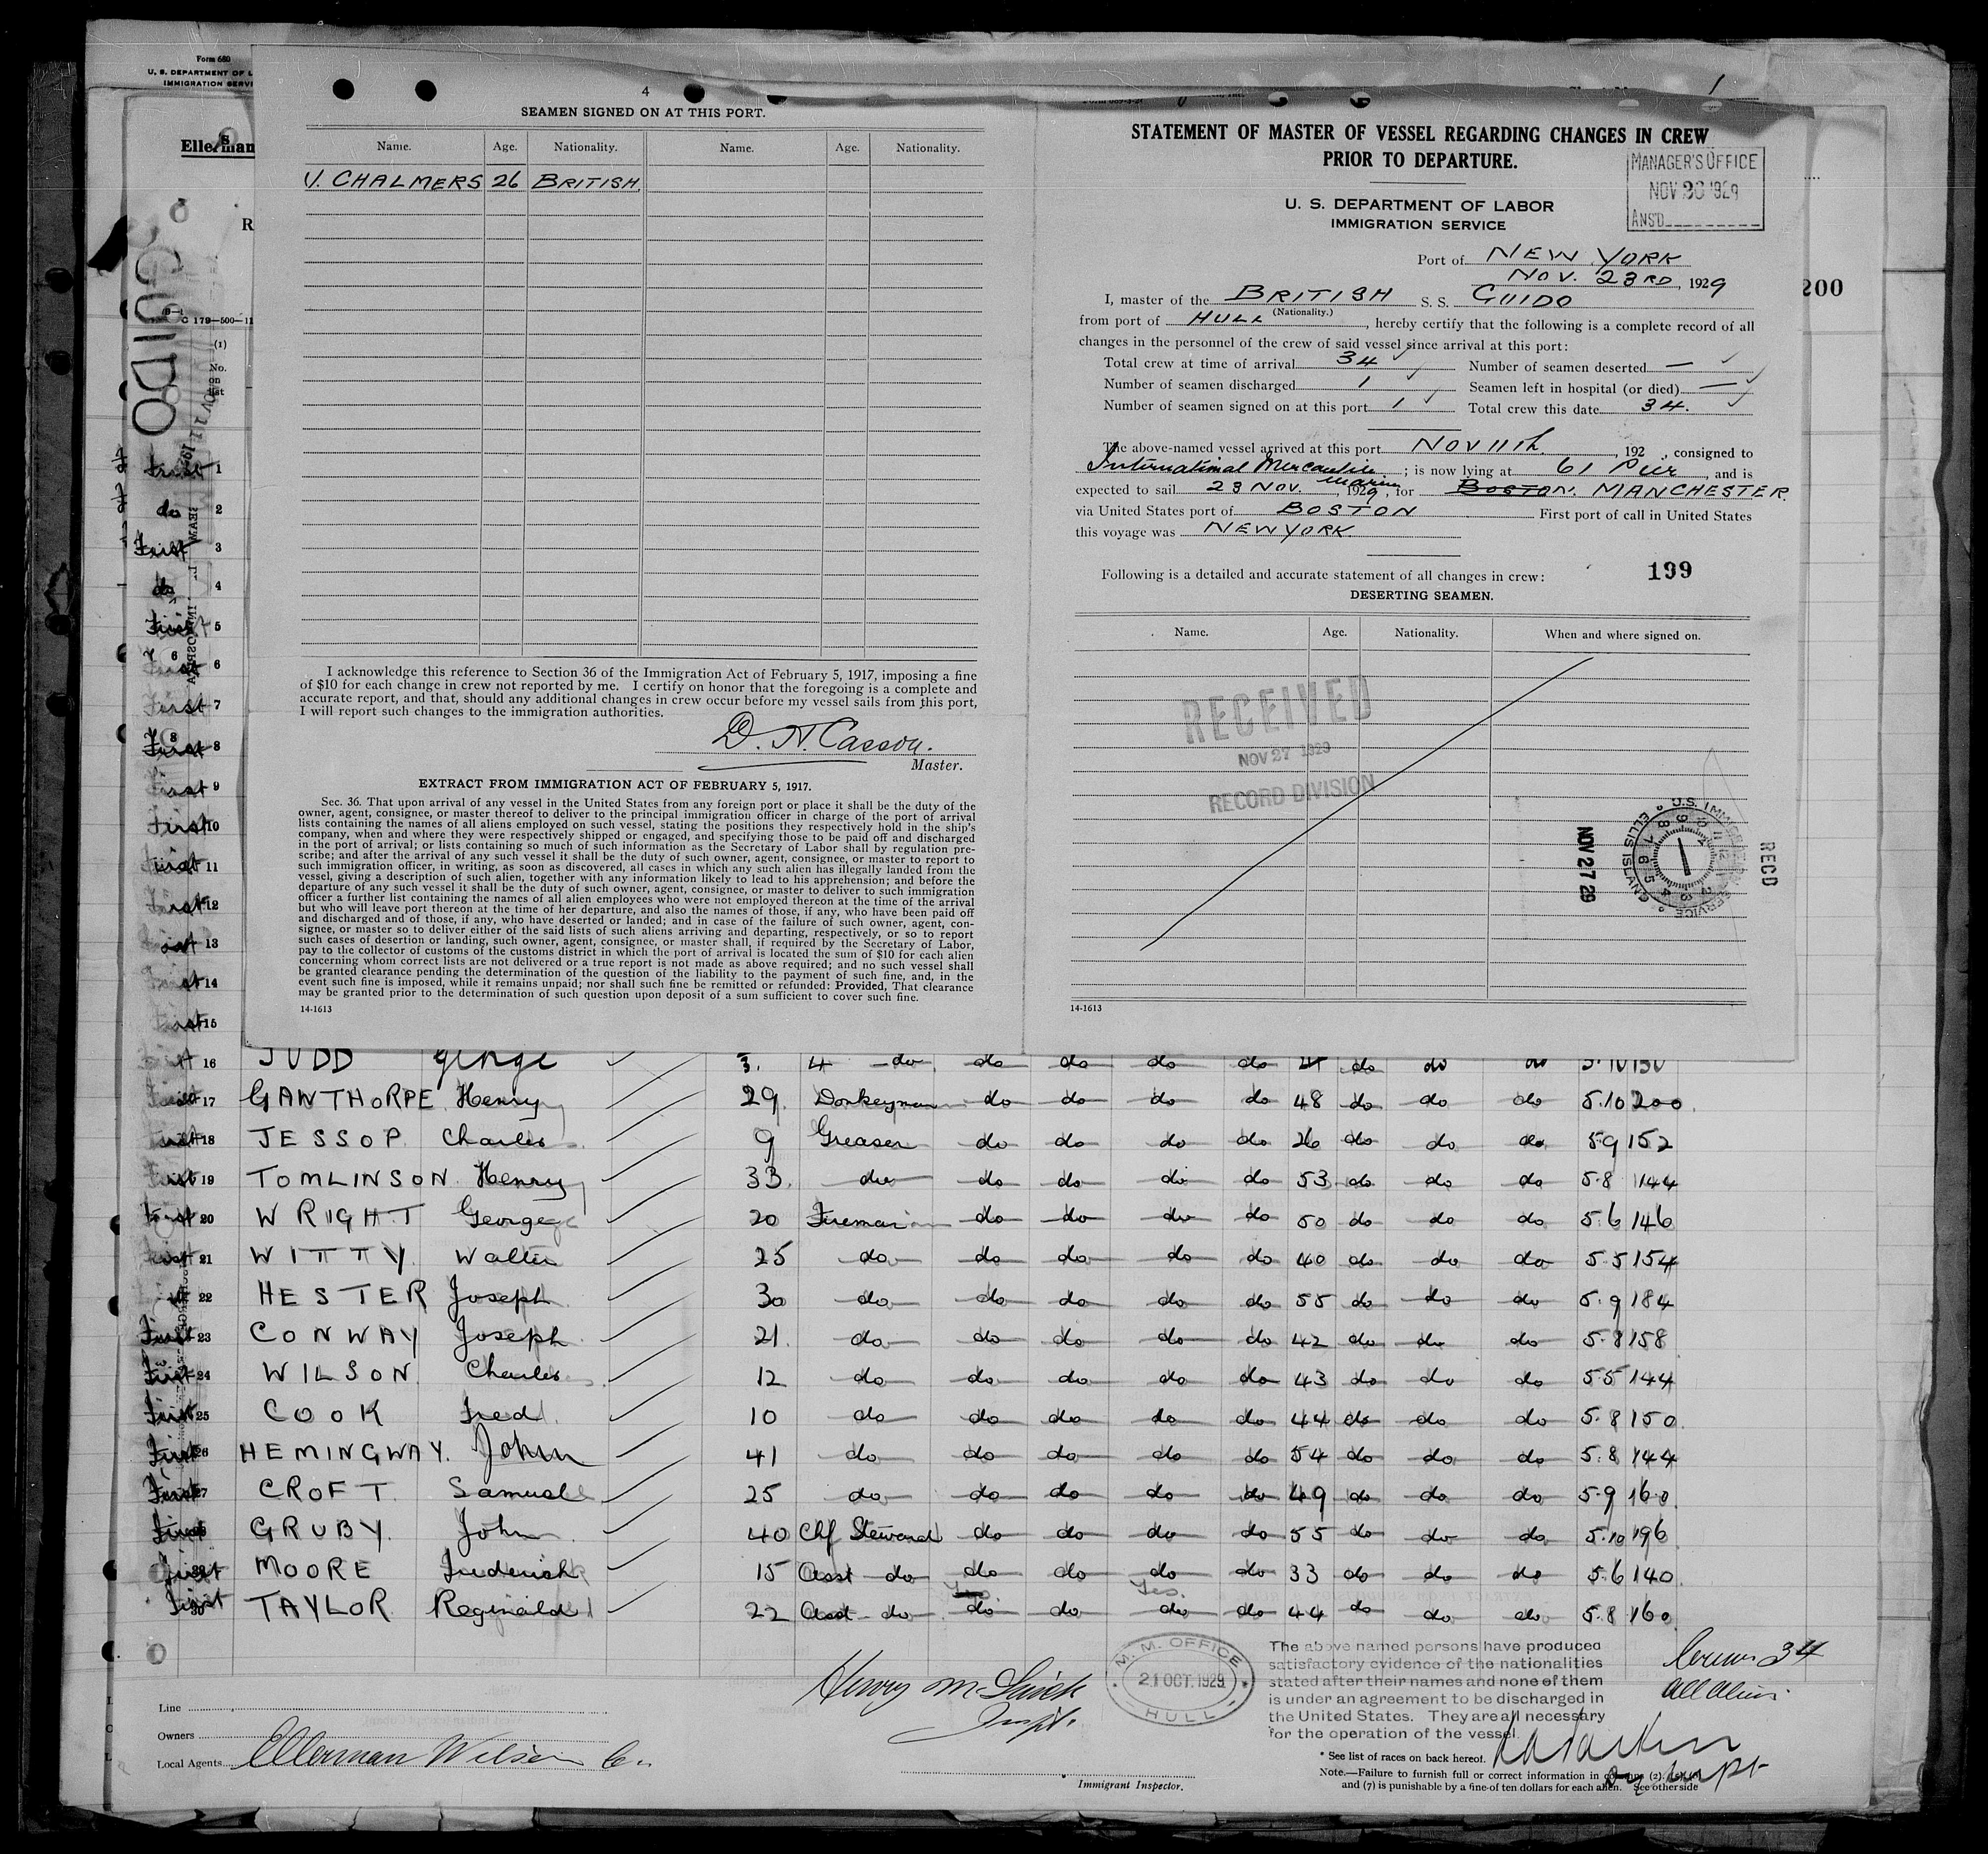 Form 680
U. S. DEPARTMENT OF L
IMMIGRATION SERVI
Ellerman
R
GUIDO
C 179—500—11
(1)
No.
on
list
4
SEAMEN SIGNED ON AT THIS PORT.
Name. Age. Nationality. Name. Age. Nationality.
V. CHALMERS 26 BRITISH.
I acknowledge this reference to Section 36 of the Immigration Act of February 5, 1917, imposing a fine
of $10 for each change in crew not reported by me. I certify on honor that the foregoing is a complete and
accurate report, and that, should any additional changes in crew occur before my vessel sails from this port,
I will report such changes to the immigration authorities.
D. N. Casson.
Master.
EXTRACT FROM IMMIGRATION ACT OF FEBRUARY 5, 1917.
Sec. 36. That upon arrival of any vessel in the United States from any foreign port or place it shall be the duty of the
owner, agent, consignee, or master thereof to deliver to the principal immigration officer in charge of the port of arrival
lists containing the names of all aliens employed on such vessel, stating the positions they respectively hold in the ship's
company, when and where they were respectively shipped or engaged, and specifying those to be paid off and discharged
in the port of arrival; or lists containing so much of such information as the Secretary of Labor shall by regulation pre-
scribe; and after the arrival of any such vessel it shall be the duty of such owner, agent, consignee, or master to report to
such immigration officer, in writing, as soon as discovered, all cases in which any such alien has illegally landed from the
vessel, giving a description of such alien, together with any information likely to lead to his apprehension; and before the
departure of any such vessel it shall be the duty of such owner, agent, consignee, or master to deliver to such immigration
officer a further list containing the names of all alien employees who were not employed thereon at the time of the arrival
but who will leave port thereon at the time of her departure, and also the names of those, if any, who have been paid off
and discharged and of those, if any, who have deserted or landed; and in case of the failure of such owner, agent, con-
signee, or master so to deliver either of the said lists of such aliens arriving and departing, respectively, or so to report
such cases of desertion or landing, such owner, agent, consignee, or master shall, if required by the Secretary of Labor,
pay to the collector of customs of the customs district in which the port of arrival is located the sum of $10 for each alien
concerning whom correct lists are not delivered or a true report is not made as above required; and no such vessel shall
be granted clearance pending the determination of the question of the liability to the payment of such fine, and, in the
event such fine is imposed, while it remains unpaid; nor shall such fine be remitted or refunded: Provided, That clearance
may be granted prior to the determination of such question upon deposit of a sum sufficient to cover such fine.
14-1613
1
STATEMENT OF MASTER OF VESSEL REGARDING CHANGES IN CREW
PRIOR TO DEPARTURE.
MANAGER'S OFFICE
NOV 23 1929
ANS'D
U. S. DEPARTMENT OF LABOR
IMMIGRATION SERVICE
Port of NEW YORK
NOV. 23RD, 1929
200
I, master of the BRITISH S. S. GUIDO
(Nationality.)
from port of HULL, hereby certify that the following is a complete record of all
changes in the personnel of the crew of said vessel since arrival at this port:
Total crew at time of arrival 34 Number of seamen deserted —
Number of seamen discharged 1 Seamen left in hospital (or died) —
Number of seamen signed on at this port 1 Total crew this date 34.
The above-named vessel arrived at this port NOV 11th, 192 , consigned to
International Mercantile Marine; is now lying at 61 Pier, and is
expected to sail 23 NOV., 1929, for BOSTON. MANCHESTER.
via United States port of BOSTON First port of call in United States
this voyage was NEW YORK.
Following is a detailed and accurate statement of all changes in crew:
199
DESERTING SEAMEN.
Name. Age. Nationality. When and where signed on.
RECEIVED
NOV 27 1929
RECORD DIVISION
NOV 27 29
U.S. IMMIGRATION SERVICE ELLIS ISLAND
RECD
14-1613
First 1
do 2
First 3
do 4
First 5
First 6
First 7
First 8
First 9
First 10
First 11
First 12
First 13
First 14
First 15
First 16 JUDD George 3. 4 do do do do do do do do 5.10 150
First 17 GAWTHORPE Henry 29. Donkeyman do do do do 48 do do do 5.10 200
First 18 JESSOP Charles 9 Greaser do do do do 26 do do do 5.9 152
First 19 TOMLINSON Henry 33. do do do do do 53 do do do 5.8 144
First 20 WRIGHT George 20 Fireman do do do do 50 do do do 5.6 146
First 21 WITTY Walter 25 do do do do do 40 do do do 5.5 154
First 22 HESTER Joseph 30 do do do do do 55 do do do 5.9 184
First 23 CONWAY Joseph 21. do do do do do 42 do do do 5.8 158
First 24 WILSON Charles 12 do do do do do 43 do do do 5.5 144
First 25 COOK Fred 10 do do do do do 44 do do do 5.8 150
First 26 HEMINGWAY. John 41 do do do do do 54 do do do 5.8 144
First 27 CROFT Samuel 25 do do do do do 49 do do do 5.9 160
First 28 GRUBY. John 40 Chf Steward do do do do 55 do do do 5.10 196
First 29 MOORE Frederick 15 Asst do do do do do 33 do do do 5.6 140
Yes Yes
First 30 TAYLOR Reginald 22 Asst do do do do do 44 do do do 5.8 160
M. M. OFFICE
21 OCT. 1929
HULL
The above named persons have produced
satisfactory evidence of the nationalities
stated after their names and none of them
is under an agreement to be discharged in
the United States. They are all necessary
for the operation of the vessel.
34
Line
Owners
Local Agents Ellerman Wilson
Immigrant Inspector.
* See list of races on back hereof.
Note.—Failure to furnish full or correct information in columns (2),
and (7) is punishable by a fine of ten dollars for each alien. See other side